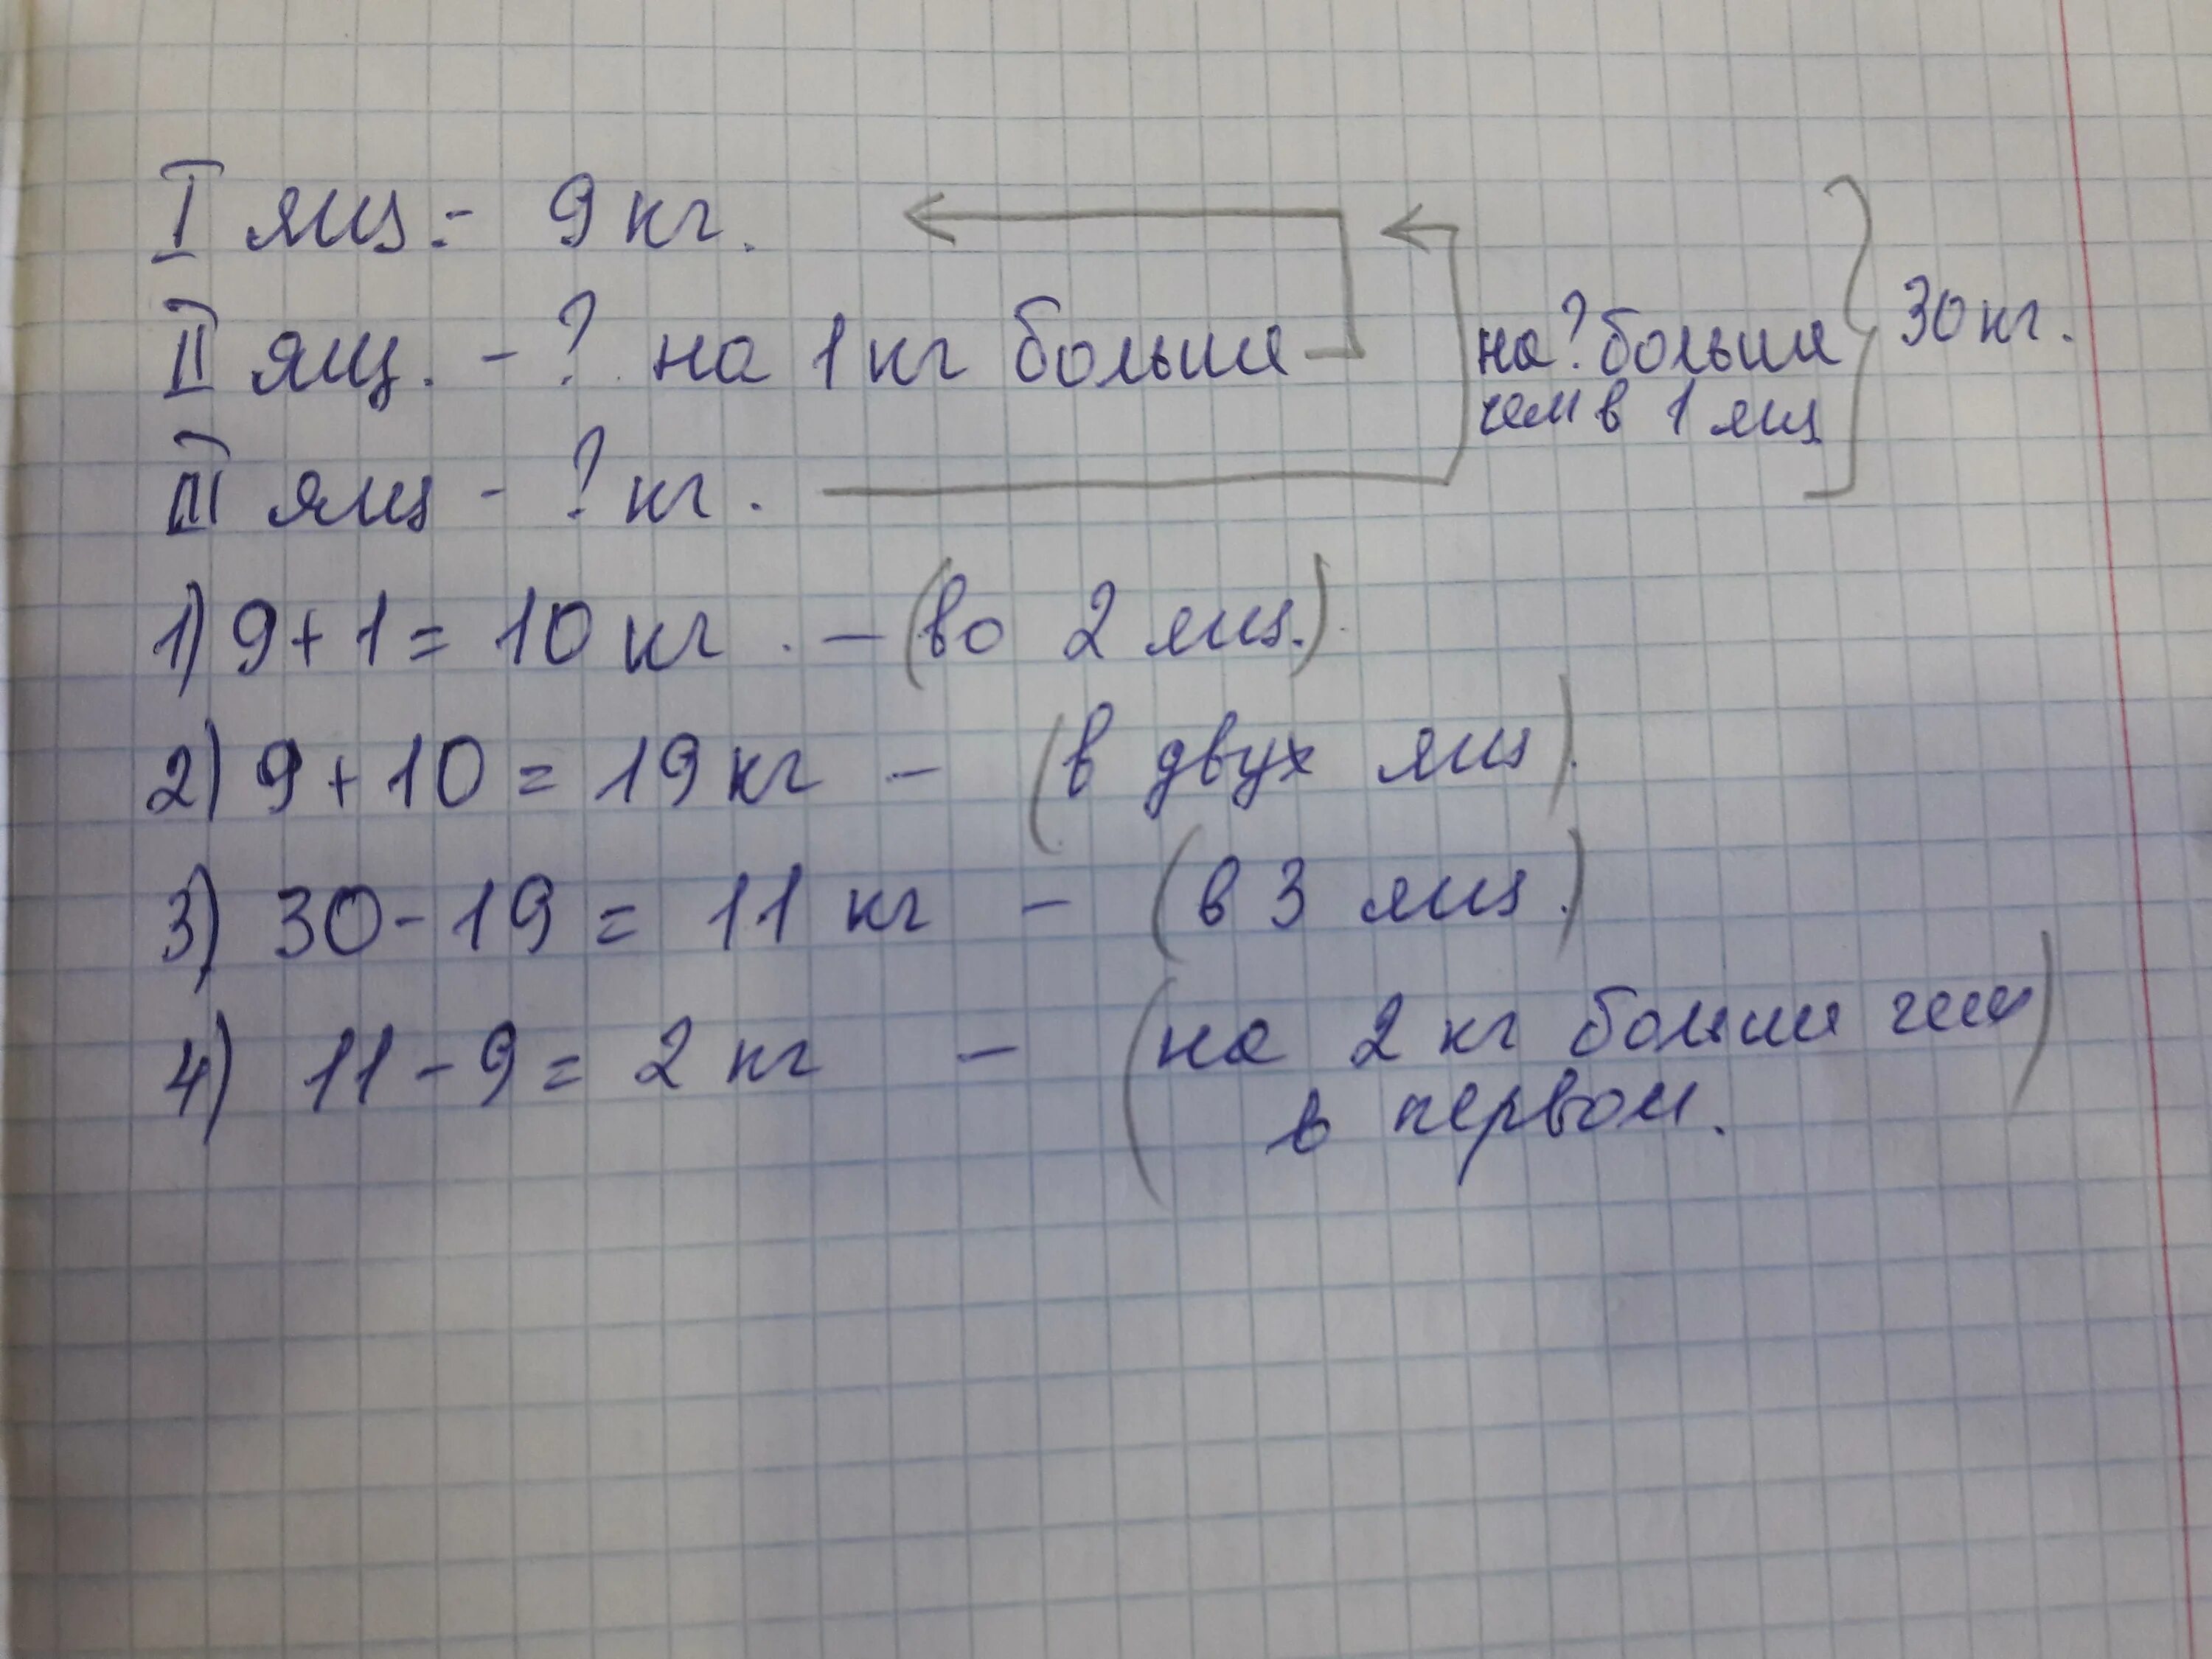 I ящ. - 9 кг.
II ящ. - ? на 1 кг больше
на ? больше
чем в 1 ящ
30 кг.
III ящ - ? кг.
1) 9 + 1 = 10 кг. - (во 2 ящ.).
2) 9 + 10 = 19 кг - (в двух ящ).
3) 30 - 19 = 11 кг - (в 3 ящ.)
4) 11 - 9 = 2 кг - (на 2 кг больше чем)
в первом.